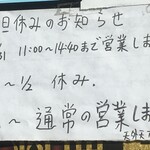 旦休みのお知らせ
31 11:00〜14:40まで営業しま
〜1/2 休み.
〜 通常の営業しま